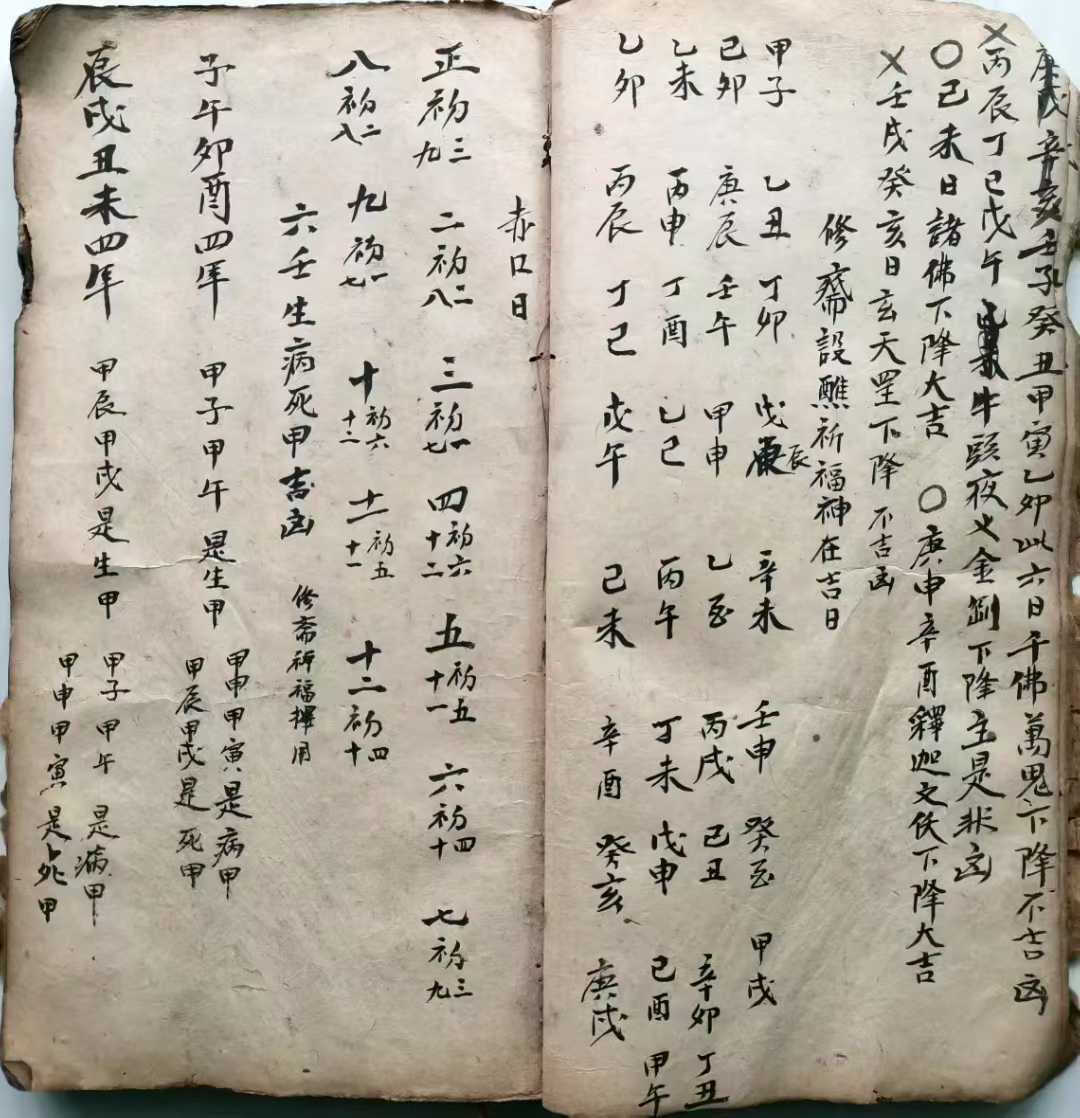 庚戌辛亥壬子癸丑甲寅乙卯此六日千佛萬鬼下降不吉凶
×丙辰丁巳戊午牛頭夜叉金剛下降主是非凶
〇己未日諸佛下降大吉 〇庚申辛酉釋迦文佛下降大吉
×壬戌癸亥日玄天罡下降不吉凶
修齋設醮祈福神在吉日
甲子 乙丑 丁卯 戊辰 辛未 壬申 癸酉 甲戌
己卯 庚辰 壬午 甲申 乙酉 丙戌 己丑 辛卯 丁丑
乙未 丙申 丁酉 乙巳 丙午 丁未 戊申 己酉 甲午
乙卯 丙辰 丁巳 戊午 己未 辛酉 癸亥 庚戌
赤口日
正初三九 二初二八 三初一七 四初六十二 五初五十一 六初四十 七初三九
八初二八 九初一七 十初六十二 十一初五十一 十二初四十
六壬生病死甲吉凶 修齋祈福擇用
子午卯酉四年 甲子甲午是生甲 甲申甲寅是病甲
甲辰甲戌是死甲
辰戌丑未四年 甲辰甲戌是生甲 甲子甲午是病甲
甲申甲寅是死甲